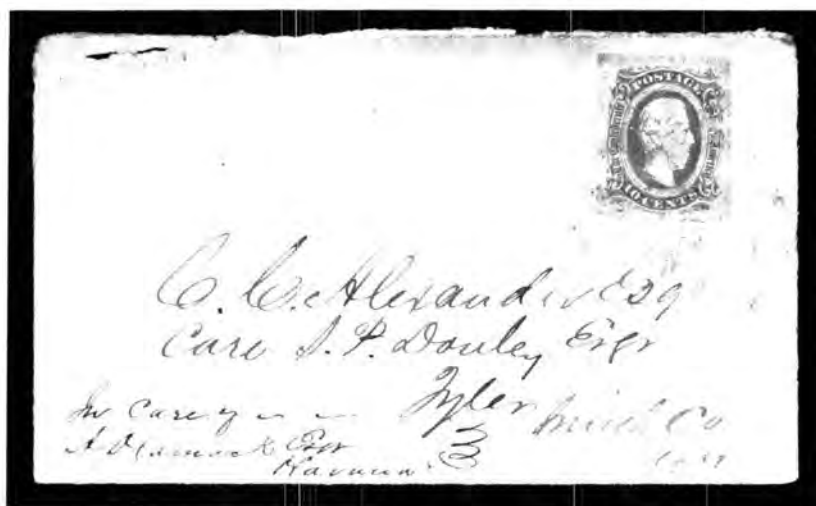 POSTAGE
10 CENTS
C. C. Alexander Esq
Care S. P. Donley Esqr
Tyler Smith Co
In care of
Esqr
Havana